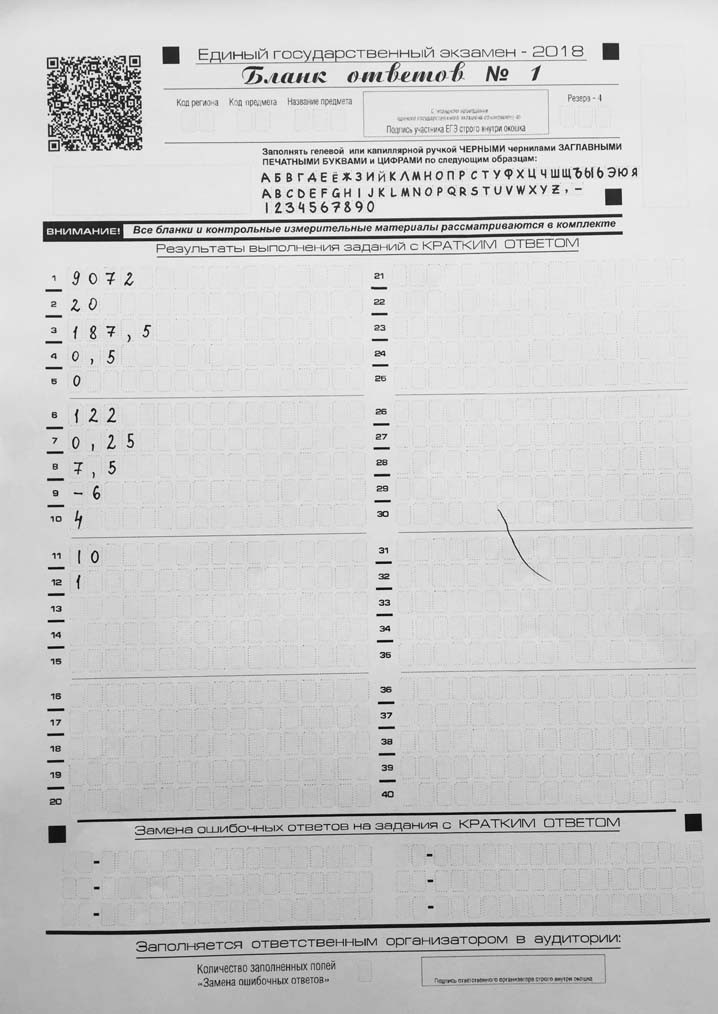 Единый государственный экзамен - 2018
Бланк ответов № 1
Код региона Код предмета Название предмета Резерв - 4
Подпись участника ЕГЭ строго внутри окошка
Заполнять гелевой или капиллярной ручкой ЧЕРНЫМИ чернилами ЗАГЛАВНЫМИ
ПЕЧАТНЫМИ БУКВАМИ и ЦИФРАМИ по следующим образцам:
АБВГДЕЁЖЗИЙКЛМНОПРСТУФХЦЧШЩЪЫЬЭЮЯ
ABCDEFGHIJKLMNOPQRSTUVWXYZ,-
1234567890
ВНИМАНИЕ! Все бланки и контрольные измерительные материалы рассматриваются в комплекте
Результаты выполнения заданий с КРАТКИМ ОТВЕТОМ
1 9072 21
2 20 22
3 187,5 23
4 0,5 24
5 0 25
6 122 26
7 0,25 27
8 7,5 28
9 -6 29
10 4 30
11 10 31
12 1 32
13 33
14 34
15 35
16 36
17 37
18 38
19 39
20 40
Замена ошибочных ответов на задания с КРАТКИМ ОТВЕТОМ
- -
- -
- -
Заполняется ответственным организатором в аудитории:
Количество заполненных полей
«Замена ошибочных ответов»
Подпись ответственного организатора строго внутри окошка